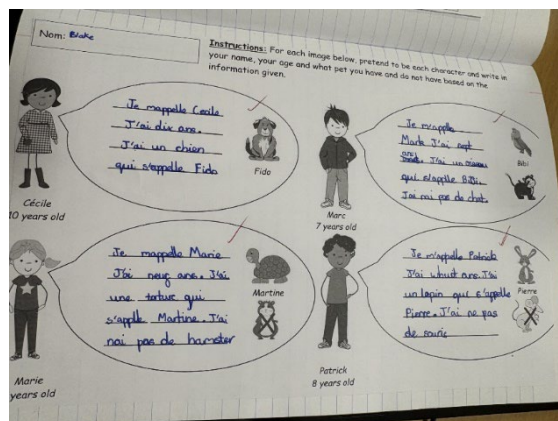 Nom: Blake
Instructions: For each image below, pretend to be each character and write in
your name, your age and what pet you have and do not have based on the
information given.
Je mappelle Cecile
J'ai dix ans.
J'ai un chien
qui s'appelle Fido
Fido
Cécile
10 years old
Je m'applle
Mark J'ai sept
ans J'ai un oiseau
qui s'applle Bibi.
J'ai nai pas de chat.
Bibi
Marc
7 years old
Je mappelle Marie
J'ai neuf ans. J'ai
une tortue qui
s'applle Martine. J'ai
nai pas de hamster
Martine
Marie
years old
Je m'appelle Patrick
J'ai whuit ans. J'ai
un lapin qui s'appelle
Pierre. J'ai ne pas
de souris
Pierre
Patrick
8 years old